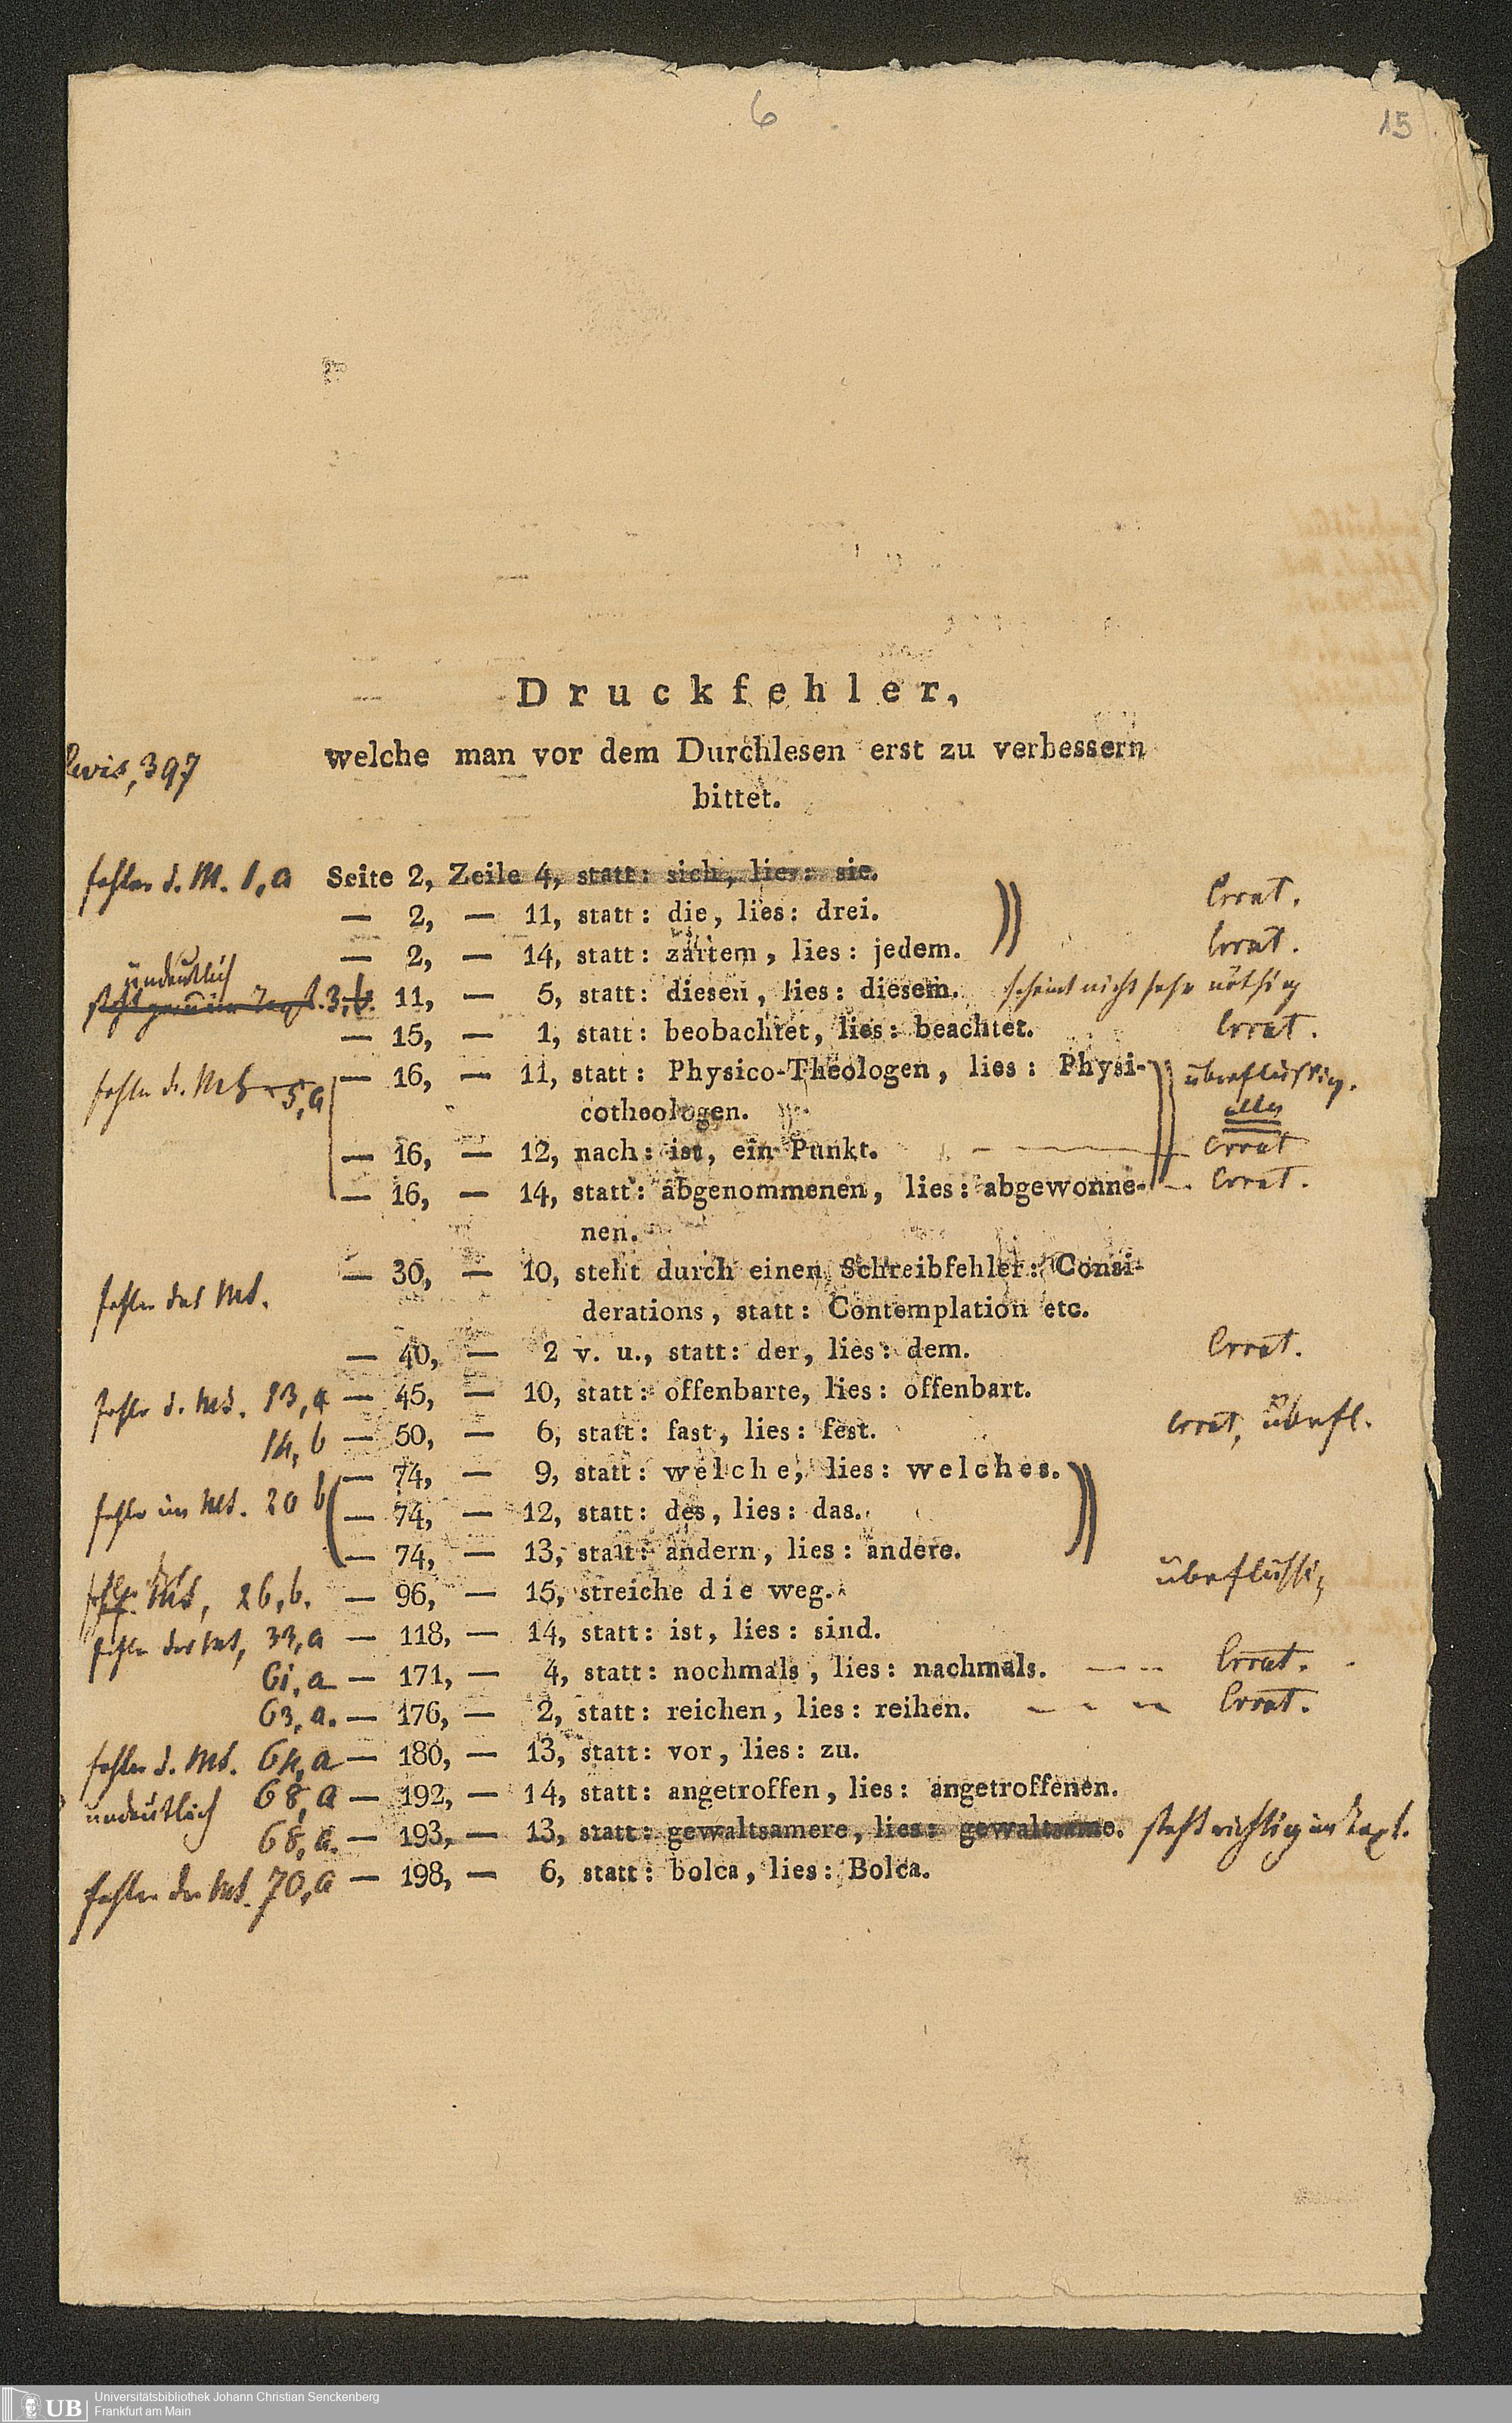 6
15
Druckfehler,
welche man vor dem Durchlesen erst zu verbessern
397
bittet.
fehler d. M. 1,a Seite 2, Zeile 4, statt: sich, lies: sie.
— 2, — 11, statt: die, lies: drei. Errat.
— 2, — 14, statt: zartem, lies: jedem. Errat.
undeutlich
3,b. 11, — 5, statt: diesen, lies: diesem. scheint nicht sehr nöthig
— 15, — 1, statt: beobachtet, lies: beachtet. Errat.
fehler d. MS 5,a — 16, — 11, statt: Physico-Theologen, lies: Physi- überflüssig.
cotheologen. alles
— 16, — 12, nach: ist, ein Punkt. — Errat
— 16, — 14, statt: abgenommenen, lies: abgewonne- — Errat.
nen.
fehler des MS. — 30, — 10, steht durch einen Schreibfehler: Consi-
derations, statt: Contemplation etc.
— 40, — 2 v. u., statt: der, lies: dem. Errat.
fehler d. MS. 13,a — 45, — 10, statt: offenbarte, lies: offenbart.
14,b — 50, — 6, statt: fast, lies: fest. Errat, überfl.
— 74, — 9, statt: welche, lies: welches.
fehler im MS. 20 b — 74, — 12, statt: des, lies: das.
— 74, — 13, statt: andern, lies: andere.
fehler MS, 26,b. — 96, — 15, streiche die weg. überflüssig
fehler des MS, 33,a — 118, — 14, statt: ist, lies: sind.
61,a — 171, — 4, statt: nochmals, lies: nachmals. — Errat.
63,a. — 176, — 2, statt: reichen, lies: reihen. — — — Errat.
fehler d. MS. 64,a — 180, — 13, statt: vor, lies: zu.
undeutlich 68,a — 192, — 14, statt: angetroffen, lies: angetroffenen.
68,a. — 193, — 13, statt: gewaltsamere, lies: gewaltsame. steht richtig im Text.
fehler des MS. 70,a — 198, — 6, statt: bolca, lies: Bolca.
UB Universitätsbibliothek Johann Christian Senckenberg
Frankfurt am Main